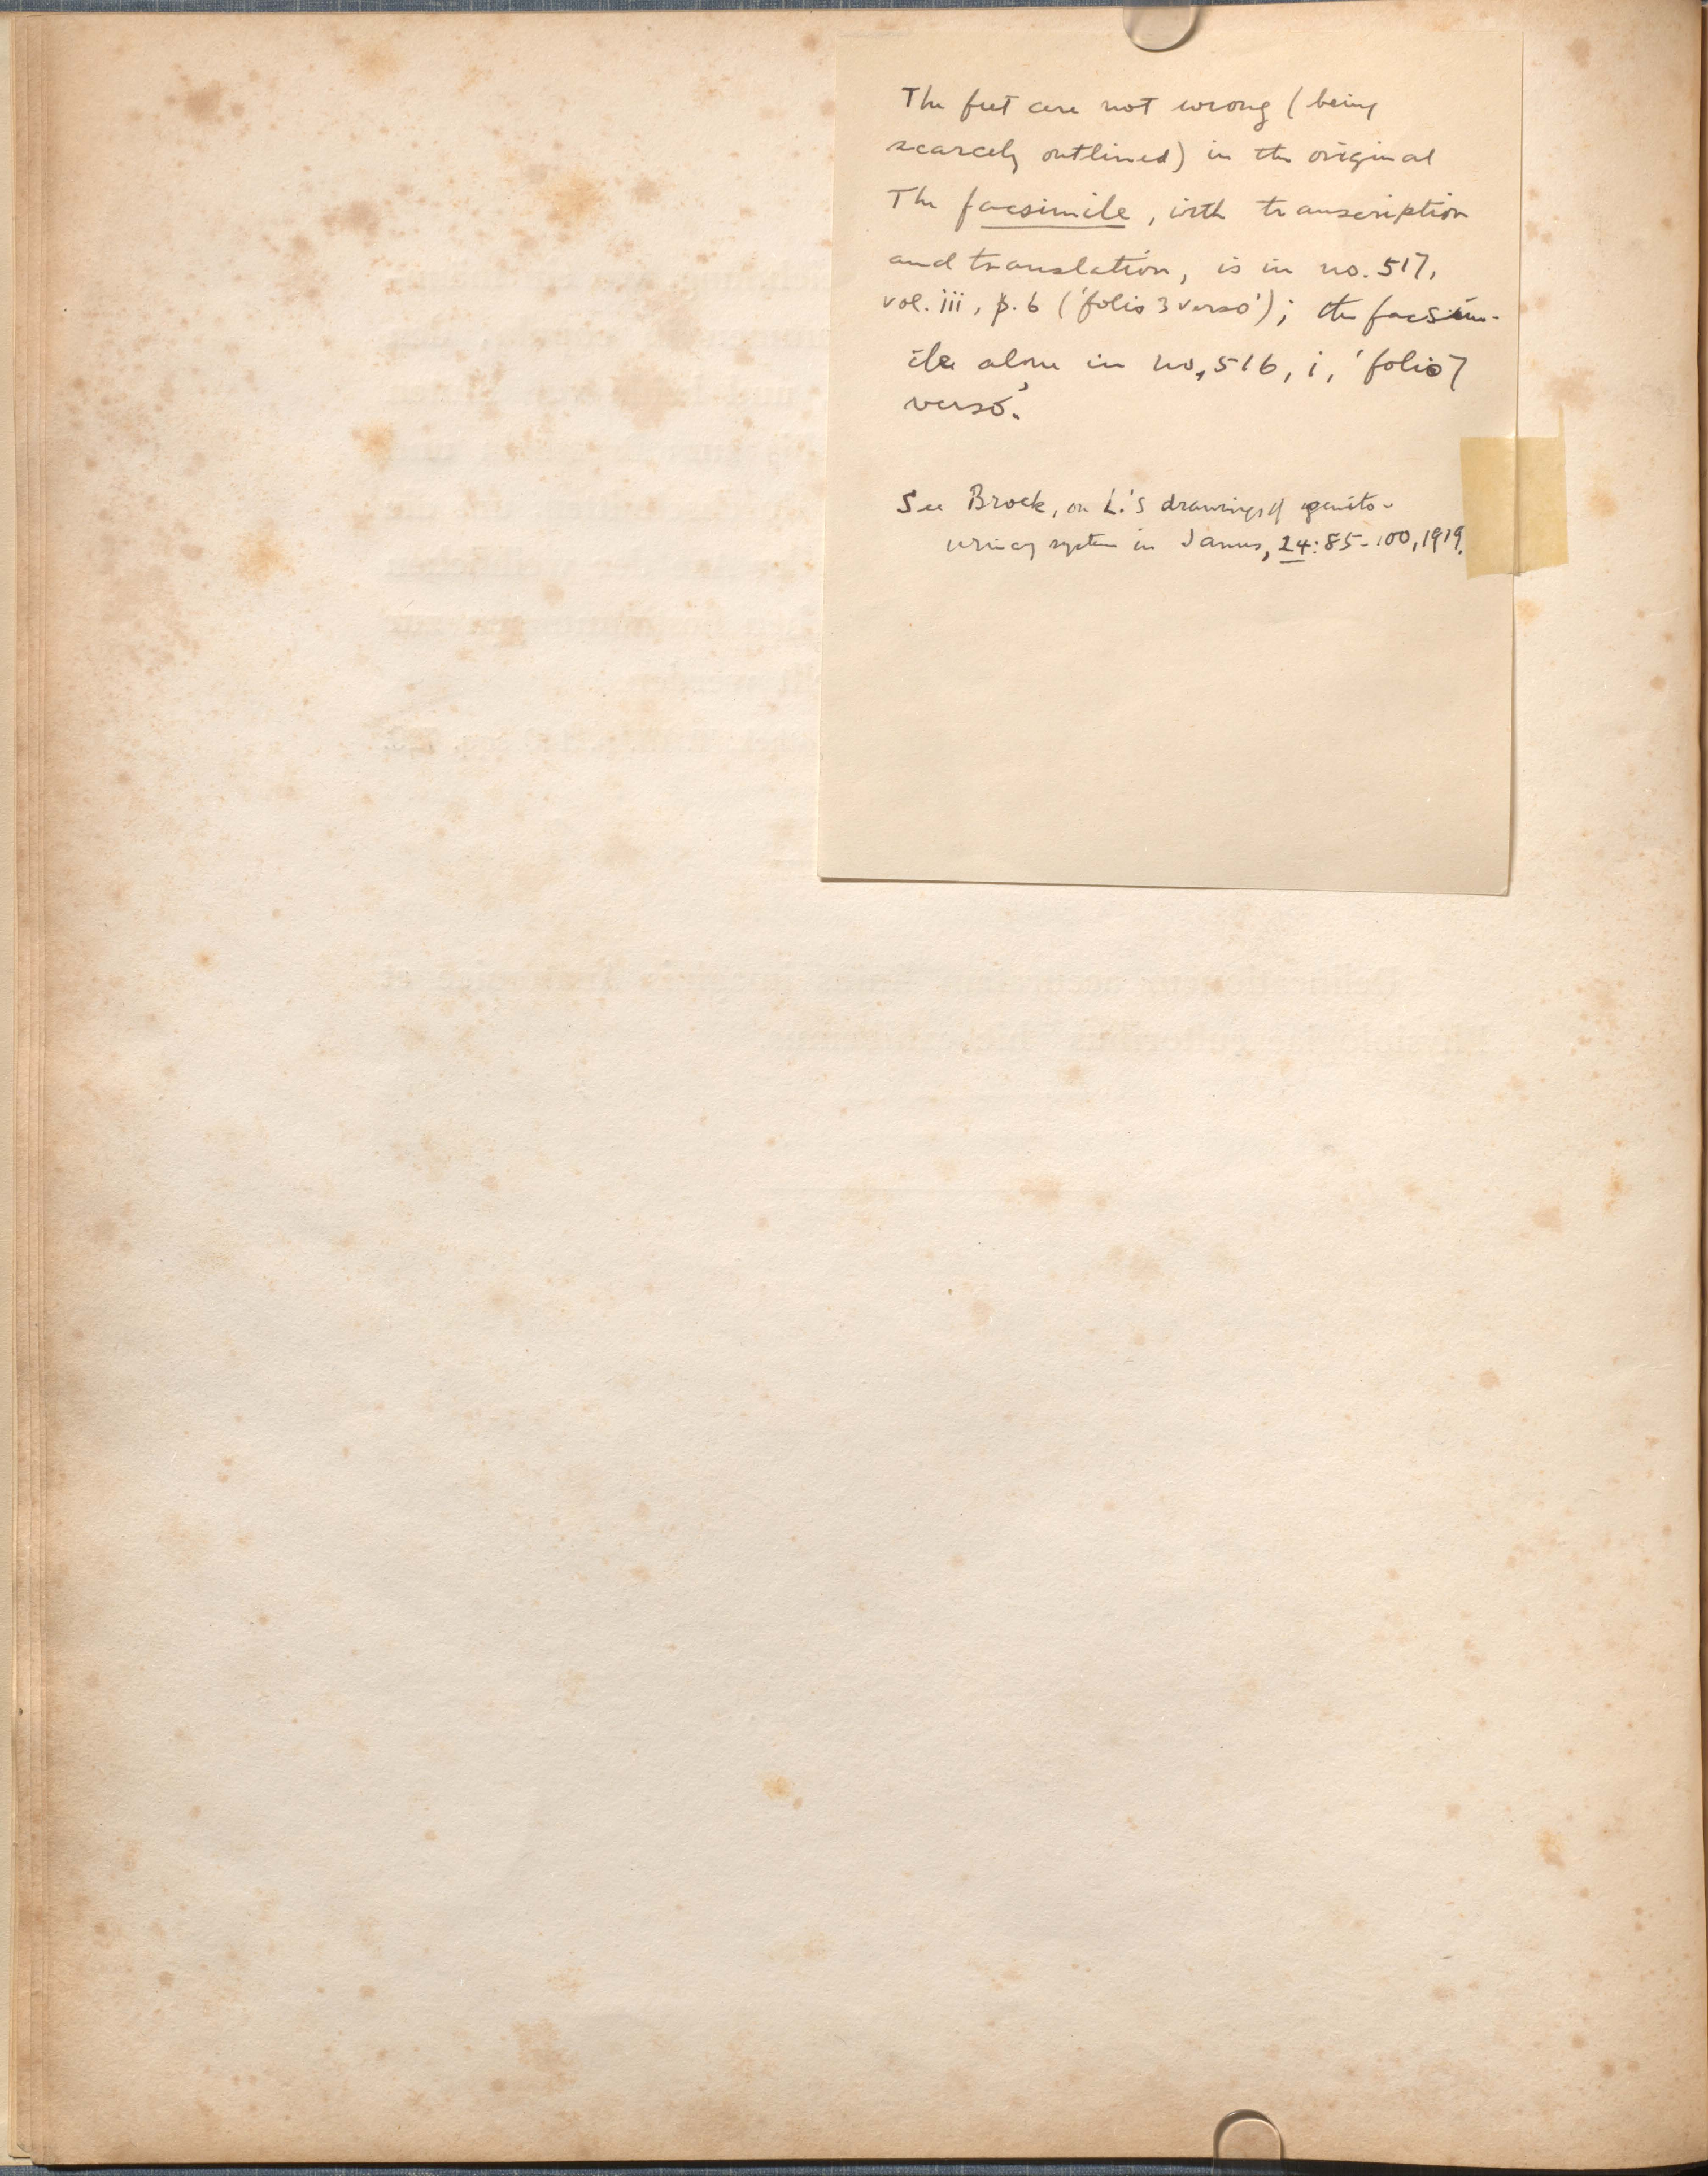 The feet are not wrong (being
scarcely outlined) in the original
The facsimile, with transcription
and translation, is in no. 517,
vol. iii, p. 6 ('folio 3 verso'); the facsim-
ile alone in no. 516, i, 'folio 7
verso'.
See Brock, on L.'s drawings of genito-
urinary system in Janus, 24:85-100, 1919.